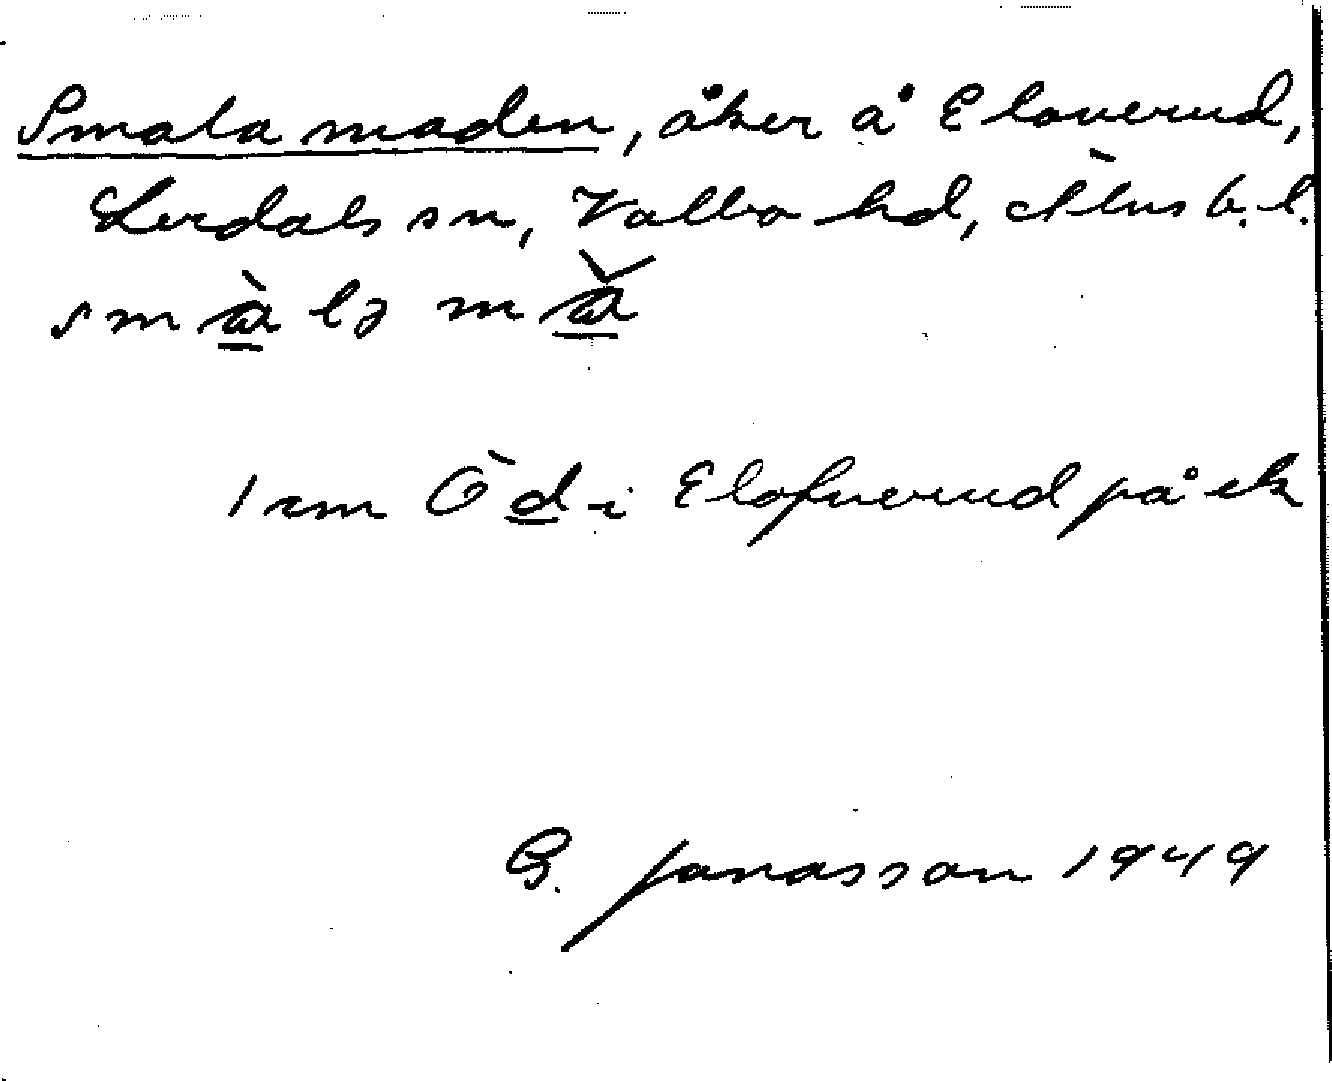 Smala maden, åker å Eloverud,
Lerdals sn, Valbo hd, Älvsb. l.
1 sm Ö d i Elofverud på ek
G. Jonasson 1949